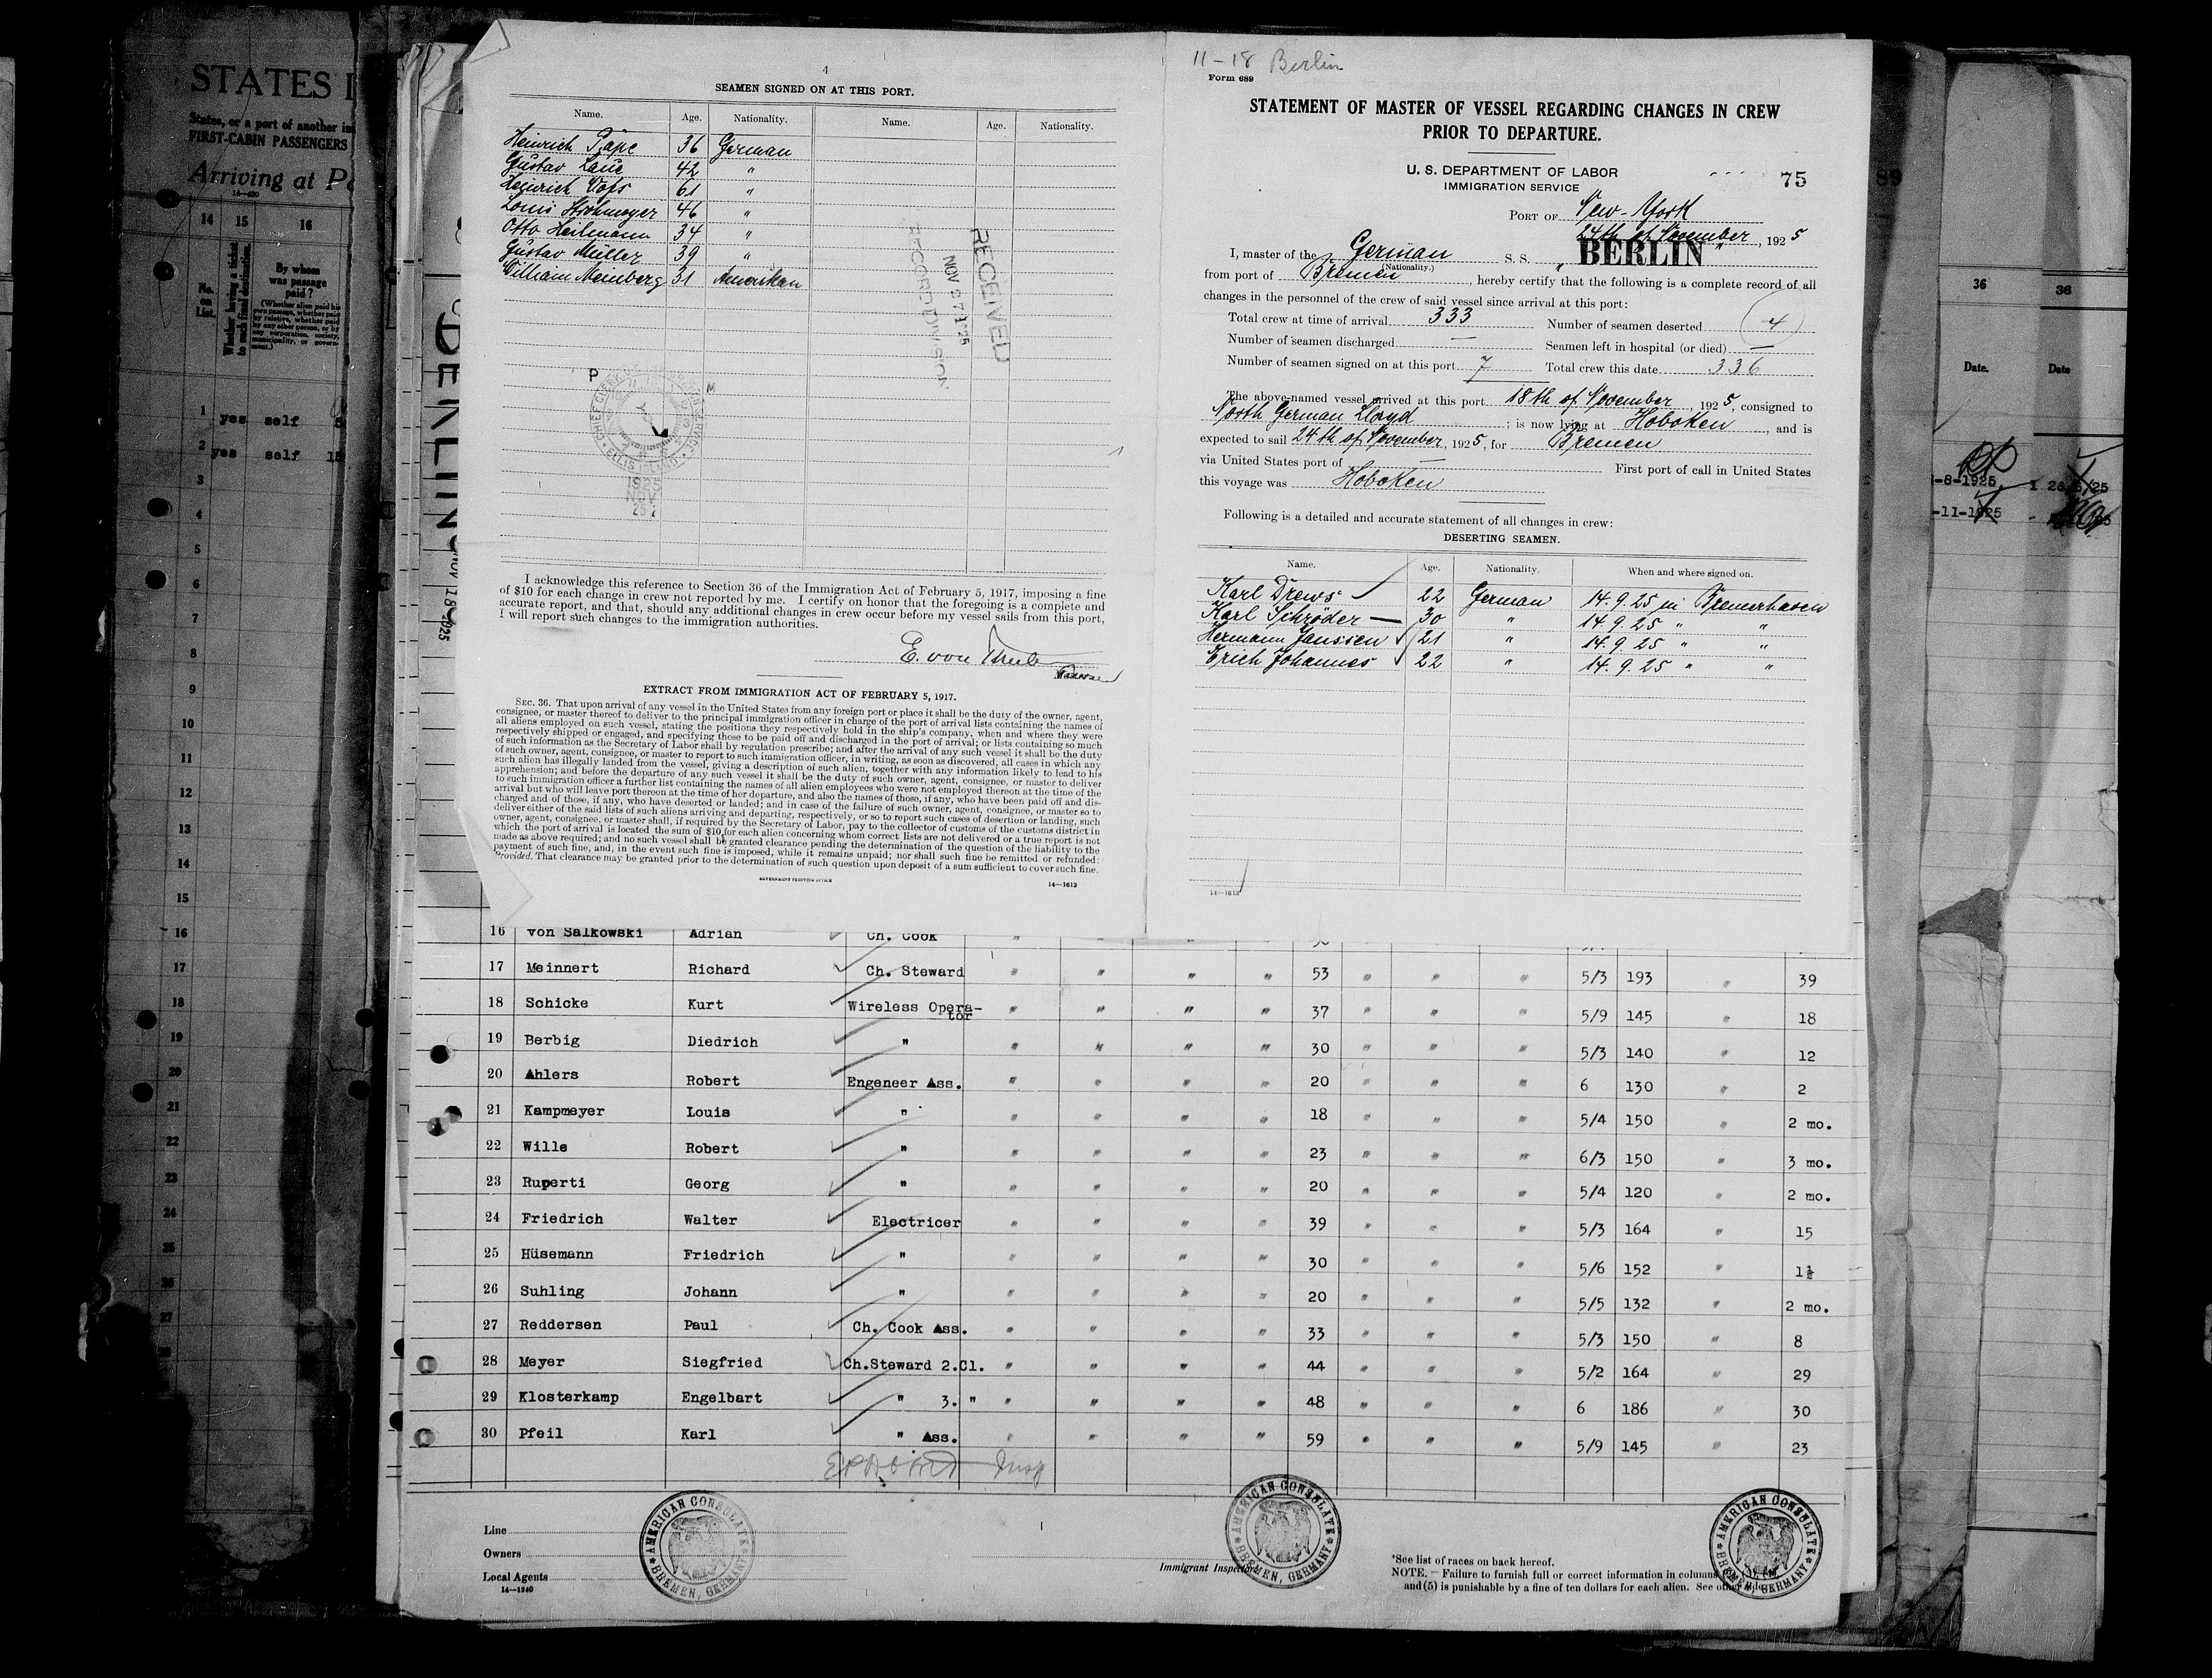 STATES I
States, or a port of another in
FIRST-CABIN PASSENGERS
Arriving at Po
14—430
14 15 16
No. on List.
Whether having a ticket to such final destination.
By whom was passage paid?
1 yes self
2 yes self 15
3
4
5
6
7
8
9
10
11
12
13
14
15
16
17
18
19
20
21
22
23
24
25
26
27
BERLIN
NOV 18 1925
4
SEAMEN SIGNED ON AT THIS PORT.
Name. Age. Nationality. Name. Age. Nationality.
Heinrich Pape 36 German
Gustav Laue 42 "
Heinrich Voss 61 "
Louis Strohmeyer 46 "
Otto Heilmann 34 "
Gustav Müller 39 "
William Meinberg 31 Amerikan
RECEIVED
NOV 27 1925
RECORD DIVISION
P M
CHIEF CLERK
ELLIS ISLAND
1925
NOV
25
I acknowledge this reference to Section 36 of the Immigration Act of February 5, 1917, imposing a fine
of $10 for each change in crew not reported by me. I certify on honor that the foregoing is a complete and
accurate report, and that, should any additional changes in crew occur before my vessel sails from this port,
I will report such changes to the immigration authorities.
E. von
EXTRACT FROM IMMIGRATION ACT OF FEBRUARY 5, 1917.
SEC. 36. That upon arrival of any vessel in the United States from any foreign port or place it shall be the duty of the owner, agent,
consignee, or master thereof to deliver to the principal immigration officer in charge of the port of arrival lists containing the names of
all aliens employed on such vessel, stating the positions they respectively hold in the ship's company, when and where they were
respectively shipped or engaged, and specifying those to be paid off and discharged in the port of arrival; or lists containing so much
of such information as the Secretary of Labor shall by regulation prescribe; and after the arrival of any such vessel it shall be the duty
of such owner, agent, consignee, or master to report to such immigration officer, in writing, as soon as discovered, all cases in which any
such alien has illegally landed from the vessel, giving a description of such alien, together with any information likely to lead to his
apprehension; and before the departure of any such vessel it shall be the duty of such owner, agent, consignee, or master to deliver
to such immigration officer a further list containing the names of all alien employees who were not employed thereon at the time of the
arrival but who will leave port thereon at the time of her departure, and also the names of those, if any, who have been paid off and dis-
charged and of those, if any, who have deserted or landed; and in case of the failure of such owner, agent, consignee, or master so to
deliver either of the said lists of such aliens arriving and departing, respectively, or so to report such cases of desertion or landing, such
owner, agent, consignee, or master shall, if required by the Secretary of Labor, pay to the collector of customs of the customs district in
which the port of arrival is located the sum of $10 for each alien concerning whom correct lists are not delivered or a true report is not
made as above required; and no such vessel shall be granted clearance pending the determination of the question of the liability to the
payment of such fine, and, in the event such fine is imposed, while it remains unpaid; nor shall such fine be remitted or refunded:
Provided, That clearance may be granted prior to the determination of such question upon deposit of a sum sufficient to cover such fine.
GOVERNMENT PRINTING OFFICE 14—1613
11-18 Berlin
Form 689
STATEMENT OF MASTER OF VESSEL REGARDING CHANGES IN CREW
PRIOR TO DEPARTURE.
U. S. DEPARTMENT OF LABOR
IMMIGRATION SERVICE
75
89
PORT OF New-York
24th of November, 1925
I, master of the German S. S. " BERLIN "
(Nationality.)
from port of Bremen, hereby certify that the following is a complete record of all
changes in the personnel of the crew of said vessel since arrival at this port:
Total crew at time of arrival 333 Number of seamen deserted 4
Number of seamen discharged — Seamen left in hospital (or died) —
Number of seamen signed on at this port 7 Total crew this date 336
The above-named vessel arrived at this port 18th of November, 1925, consigned to
North German Lloyd; is now lying at Hoboken, and is
expected to sail 24th of November, 1925, for Bremen
via United States port of — First port of call in United States
this voyage was Hoboken
Following is a detailed and accurate statement of all changes in crew:
DESERTING SEAMEN.
Name. Age. Nationality. When and where signed on.
Karl Drews 22 German 14.9.25 in Bremerhaven
Karl Schröder 30 " 14.9.25 " "
Hermann Janssen 21 " 14.9.25 " "
Erich Johannes 22 " 14.9.25 " "
14—1613
36 36
Date. Date
-8-1925
-11-1925
16 von Salkowski Adrian Ch. Cook
17 Meinnert Richard Ch. Steward " " " " 53 " " " 5/3 193 " 39
18 Schicke Kurt Wireless Opera-tor " " " " 37 " " " 5/9 145 " 18
19 Berbig Diedrich " " " " " 30 " " " 5/3 140 " 12
20 Ahlers Robert Engeneer Ass. " " " " 20 " " " 6 130 " 2
21 Kampmeyer Louis " " " " " 18 " " " 5/4 150 " 2 mo.
22 Wille Robert " " " " " 23 " " " 6/3 150 " 3 mo.
23 Ruperti Georg " " " " " 20 " " " 5/4 120 " 2 mo.
24 Friedrich Walter Electricer " " " " 39 " " " 5/3 164 " 15
25 Hüsemann Friedrich " " " " " 30 " " " 5/6 152 " 1½
26 Suhling Johann " " " " " 20 " " " 5/5 132 " 2 mo.
27 Reddersen Paul Ch. Cook Ass. " " " " 33 " " " 5/3 150 " 8
28 Meyer Siegfried Ch.Steward 2.Cl. " " " " 44 " " " 5/2 164 " 29
29 Klosterkamp Engelbart " 3. " " " " " 48 " " " 6 186 " 30
30 Pfeil Karl " Ass. " " " " 59 " " " 5/9 145 " 23
Insp
Line
Owners
Local Agents
14—1240
AMERICAN CONSULATE BREMEN, GERMANY
Immigrant Inspector
AMERICAN CONSULATE BREMEN, GERMANY
*See list of races on back hereof.
NOTE.—Failure to furnish full or correct information in columns
and (5) is punishable by a fine of ten dollars for each alien. See other side.
AMERICAN CONSULATE BREMEN, GERMANY